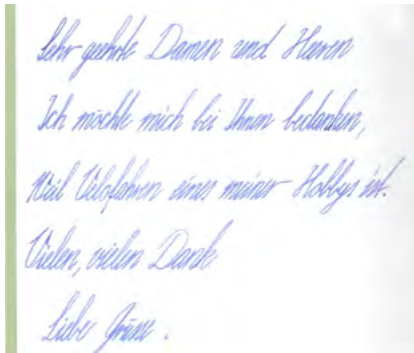 Sehr geehrte Damen und Herren
Ich möchte mich bei Ihnen bedanken,
Weil Velofahren eines meiner Hobbys ist.
Vielen, vielen Dank
Liebe Grüsse.